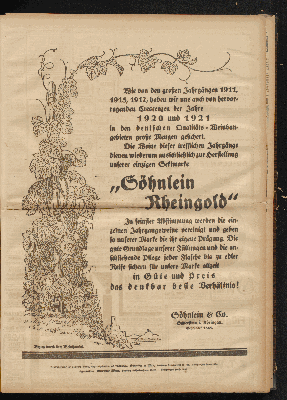 Wie von den großen Jahrgängen 1911,
1915, 1917, haben wir uns auch von hervor-
ragenden Crescenzen der Jahre
1920 und 1921
in den deutschen Qualitäts-Weinbau-
gebieten große Mengen gesichert.
Die Weine dieser trefflichen Jahrgänge
dienen wiederum ausschließlich zur Herstellung
unserer einzigen Sektmarke
„Söhnlein
Rheingold“
In feinster Abstimmung werden die ein-
zelnen Jahrgangsweine vereinigt und geben
so unserer Marke die ihr eigene Prägung. Die
gute Grundlage unserer Füllungen und die an-
schließende Pflege jeder Flasche bis zu edler
Reife sichern für unsere Marke allzeit
in Güte und Preis
das denkbar beste Verhältnis!
Söhnlein & Co.
Bezug durch den Weinhandel.